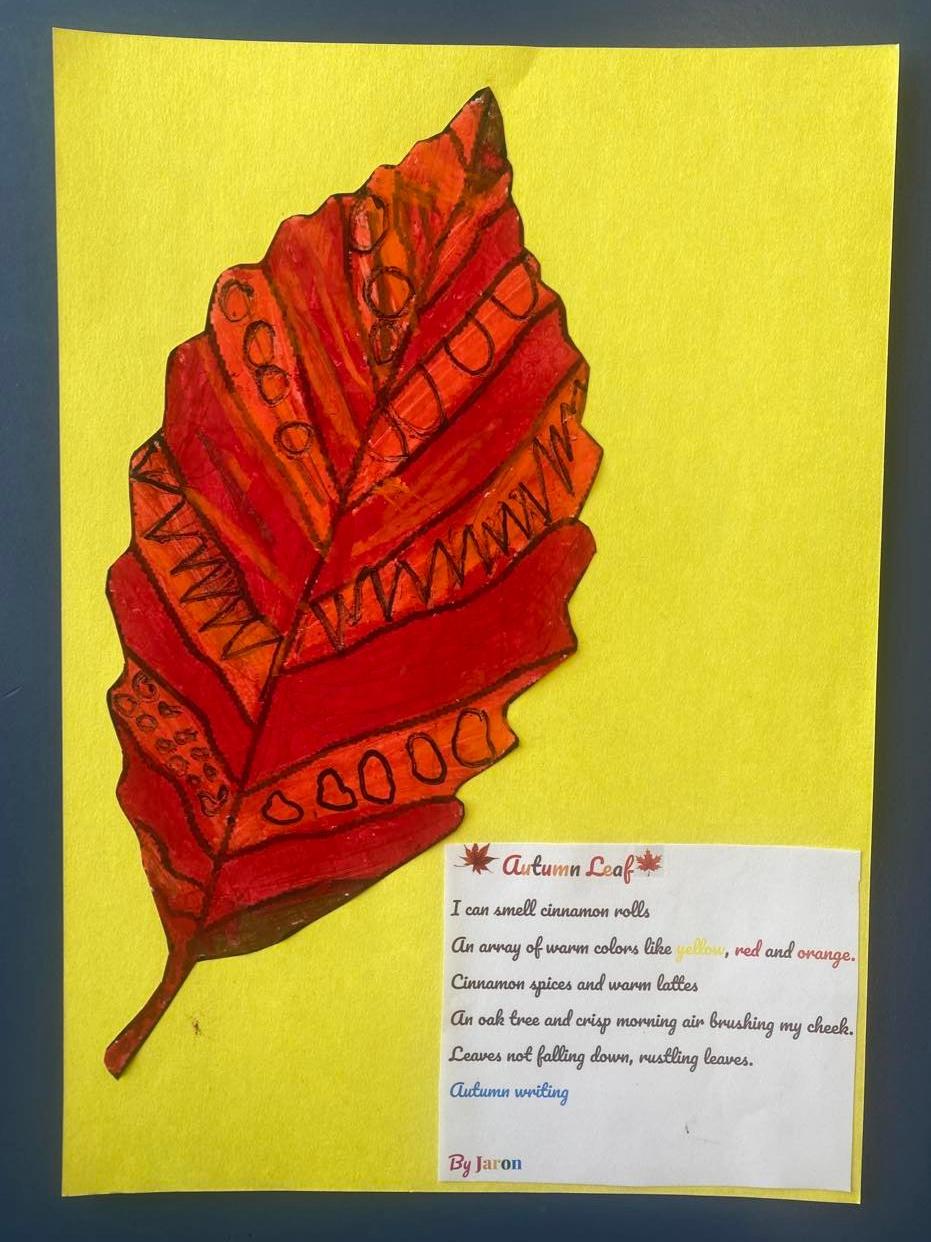 Autumn Leaf
I can smell cinnamon rolls
An array of warm colors like yellow, red and orange.
Cinnamon spices and warm lattes
An oak tree and crisp morning air brushing my cheek.
Leaves not falling down, rustling leaves.
Autumn writing
By Jaron